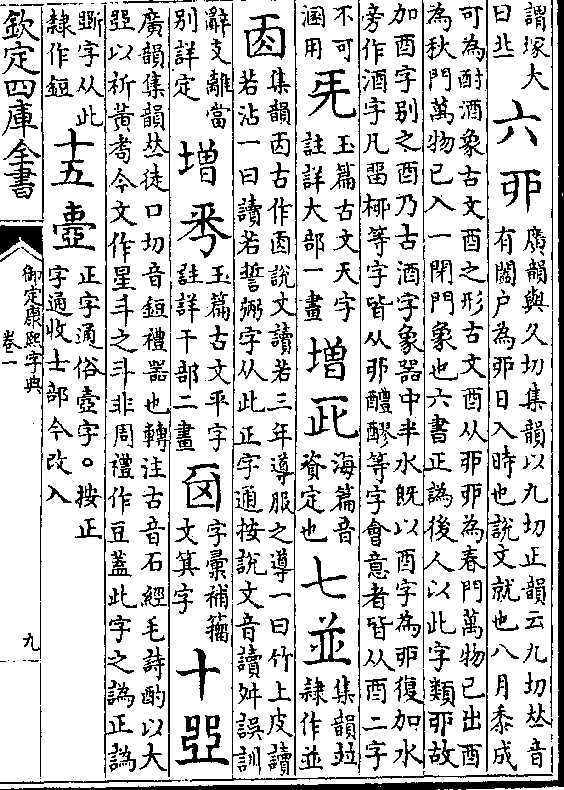 謂塚大
曰丠
六
丣
廣韻與久切集韻以九切正韻云九切𠀤音
有闔户為丣日入時也說文就也八月黍成
可為酎酒象古文酉之形古文酉从丣丣為春門萬物已出酉
為秋門萬物已入一閉門象也六書正譌後人以此字類丣故
加酉字别之酉乃古酒字象器中半水既以酉字為丣復加水
旁作酒字凡畱桺等字皆从丣醴醪等字會意者皆从酉二字
不可
涵用
玉篇古文天字
註詳大部一畫
增
海篇音
資定也
七
並
集韻竝
隸作並
㐁
集韻㐁古作㐁說文讀若三年導服之導一曰竹上皮讀
若沾一曰讀若誓弼字从此正字通按說文音讀舛誤訓
辭支離當
别詳定
增
玉篇古文平字
註詳干部二畫
字彙補籀
文箕字
十
𠁁
廣韻集韻𠀤徒口切音鋀禮器也轉注古音石經毛詩酌以大
𠁁以祈黃耉今文作星斗之斗非周禮作豆蓋此字之譌正譌
斲字从此
隸作鋀
十五
正字通俗壺字。按正
字通收士部今改入
欽定四庫全書
御定康熙字典
卷一
九